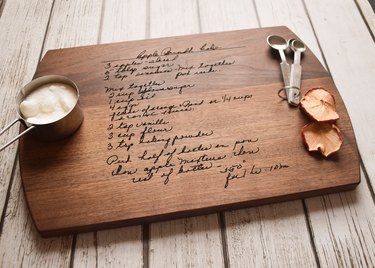 Apple Cake
3 apples - sliced
5 tbsp sugar
2 tsp cinnamon Mix together
put aside
Mix together
2 cup sugar
1 cup oil
4 eggs
1/4 cup
2 tsp vanilla
3 cup flour
3 tsp baking powder
Put half of batter in pan
then apple mixture then
rest of batter - 350°
for 1 hr. 10m